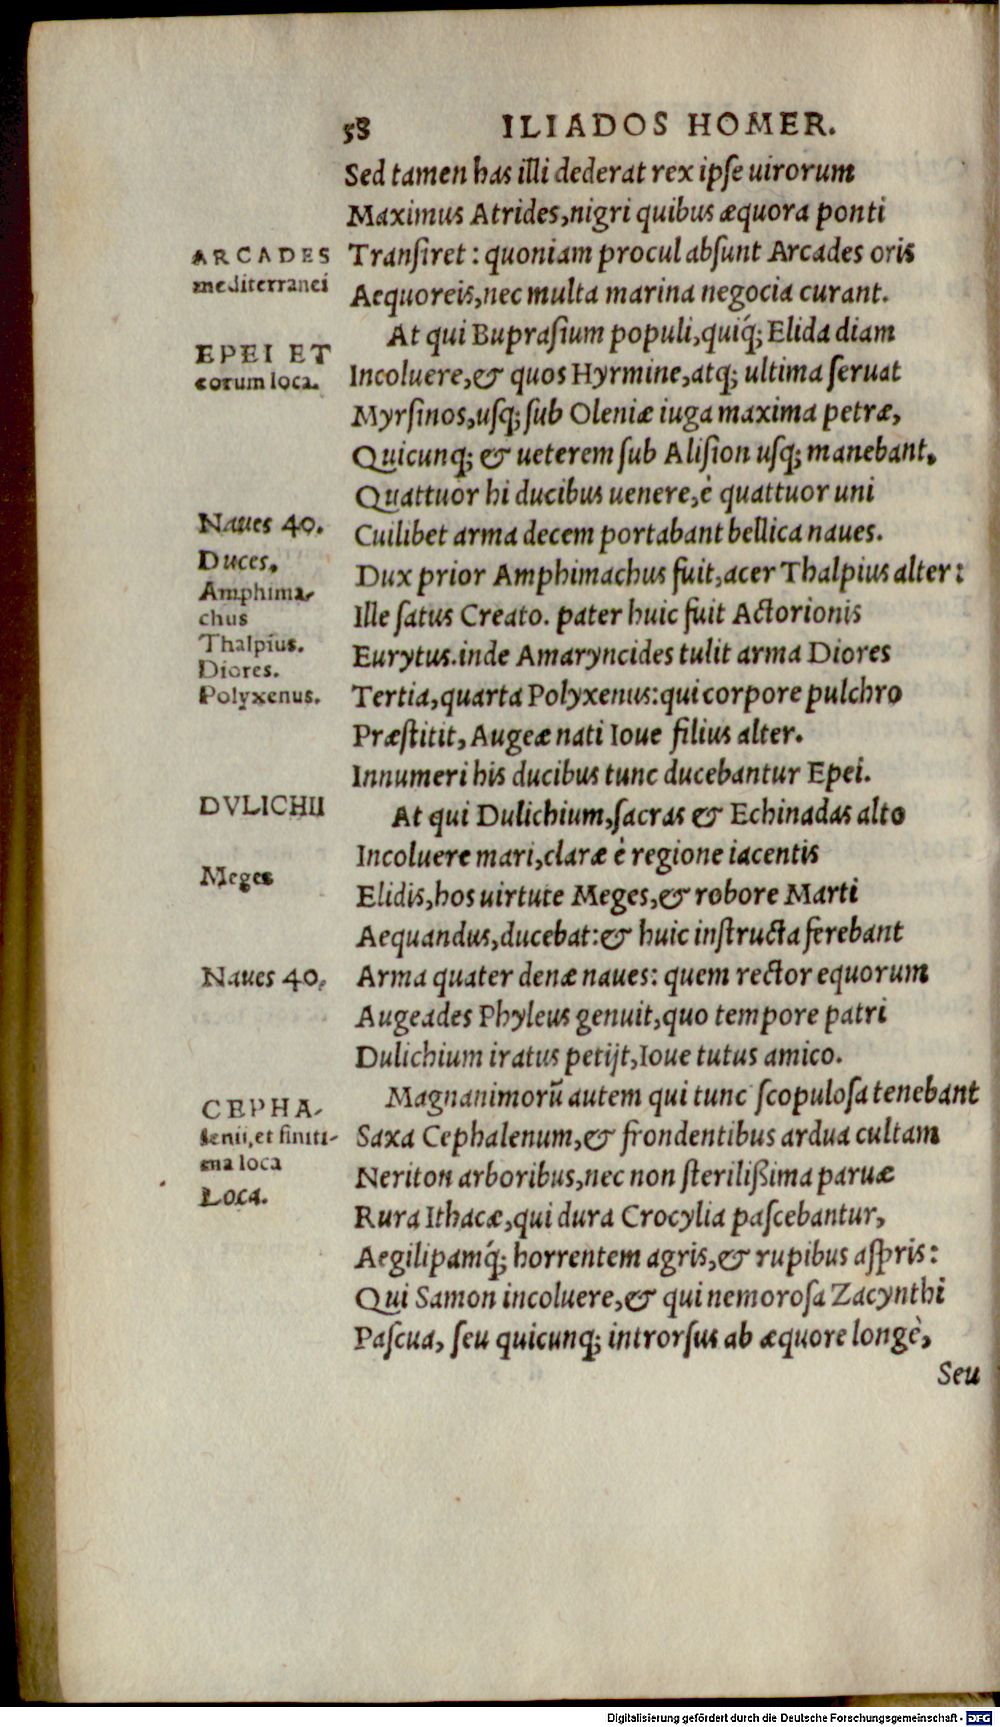 58 ILIADOS HOMER.
Sed tamen has illi dederat rex ipſe uirorum
Maximus Atrides,nigri quibus æquora ponti
ARCADES
mediterranei
Tranſiret : quoniam procul abſunt Arcades oris
Aequoreis,nec multa marina negocia curant.
EPEI ET
eorum loca.
At qui Bupraſium populi,quiq́; Elida diam
Incoluere,& quos Hyrmine,atq; ultima ſeruat
Myrſinos,uſq; ſub Oleniæ iuga maxima petræ,
Quicunq; & ueterem ſub Aliſion uſq; manebant.
Quattuor hi ducibus uenere,è quattuor uni
Naues 40.
Cuilibet arma decem portabant bellica naues.
Duces.
Amphima-
chus
Thalpius.
Diores.
Polyxenus.
Dux prior Amphimachus fuit,acer Thalpius alter:
Ille ſatus Creato. pater huic fuit Actorionis
Eurytus.inde Amaryncides tulit arma Diores
Tertia,quarta Polyxenus:qui corpore pulchro
Præſtitit, Augeæ nati Ioue filius alter.
Innumeri his ducibus tunc ducebantur Epei.
DVLICHII
At qui Dulichium,ſacras & Echinadas alto
Incoluere mari,claræ è regione iacentis
Meges
Elidis,hos uirtute Meges,& robore Marti
Aequandus,ducebat:& huic inſtructa ferebant
Naues 40.
Arma quater denæ naues: quem rector equorum
Augeades Phyleus genuit,quo tempore patri
Dulichium iratus petijt,Ioue tutus amico.
CEPHA-
lenii,et finiti-
ma loca
Loca.
Magnanimorũ autem qui tunc ſcopuloſa tenebant
Saxa Cephalenum,& frondentibus ardua cultam
Neriton arboribus,nec non ſterilißima paruæ
Rura Ithacæ,qui dura Crocylia paſcebantur,
Aegilipamq́; horrentem agris,& rupibus aſpris:
Qui Samon incoluere,& qui nemoroſa Zacynthi
Paſcua, ſeu quicunq; introrſus ab æquore longè,
Seu
Digitalisierung gefördert durch die Deutsche Forschungsgemeinschaft - DFG